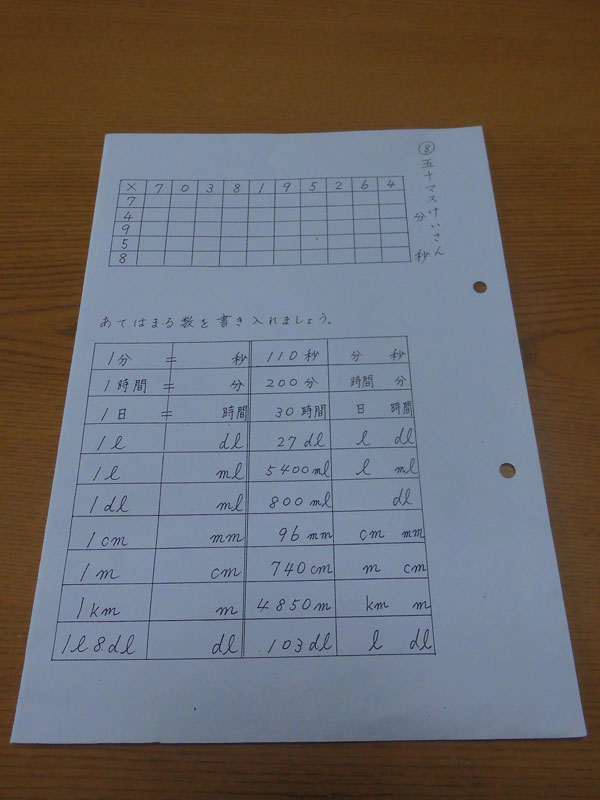 ⑧ 五十マスけいさん
分
秒
× 7 0 3 8 1 9 5 2 6 4
7
4
9
5
8
あてはまる数を書き入れましょう。
1分 = 秒 110秒 分 秒
1時間 = 分 200分 時間 分
1日 = 時間 30時間 日 時間
1l dl 27dl l dl
1l ml 5400ml l ml
1dl ml 800ml dl
1cm mm 96mm cm mm
1m cm 740cm m cm
1km m 4850m km m
1l8dl dl 103dl l dl